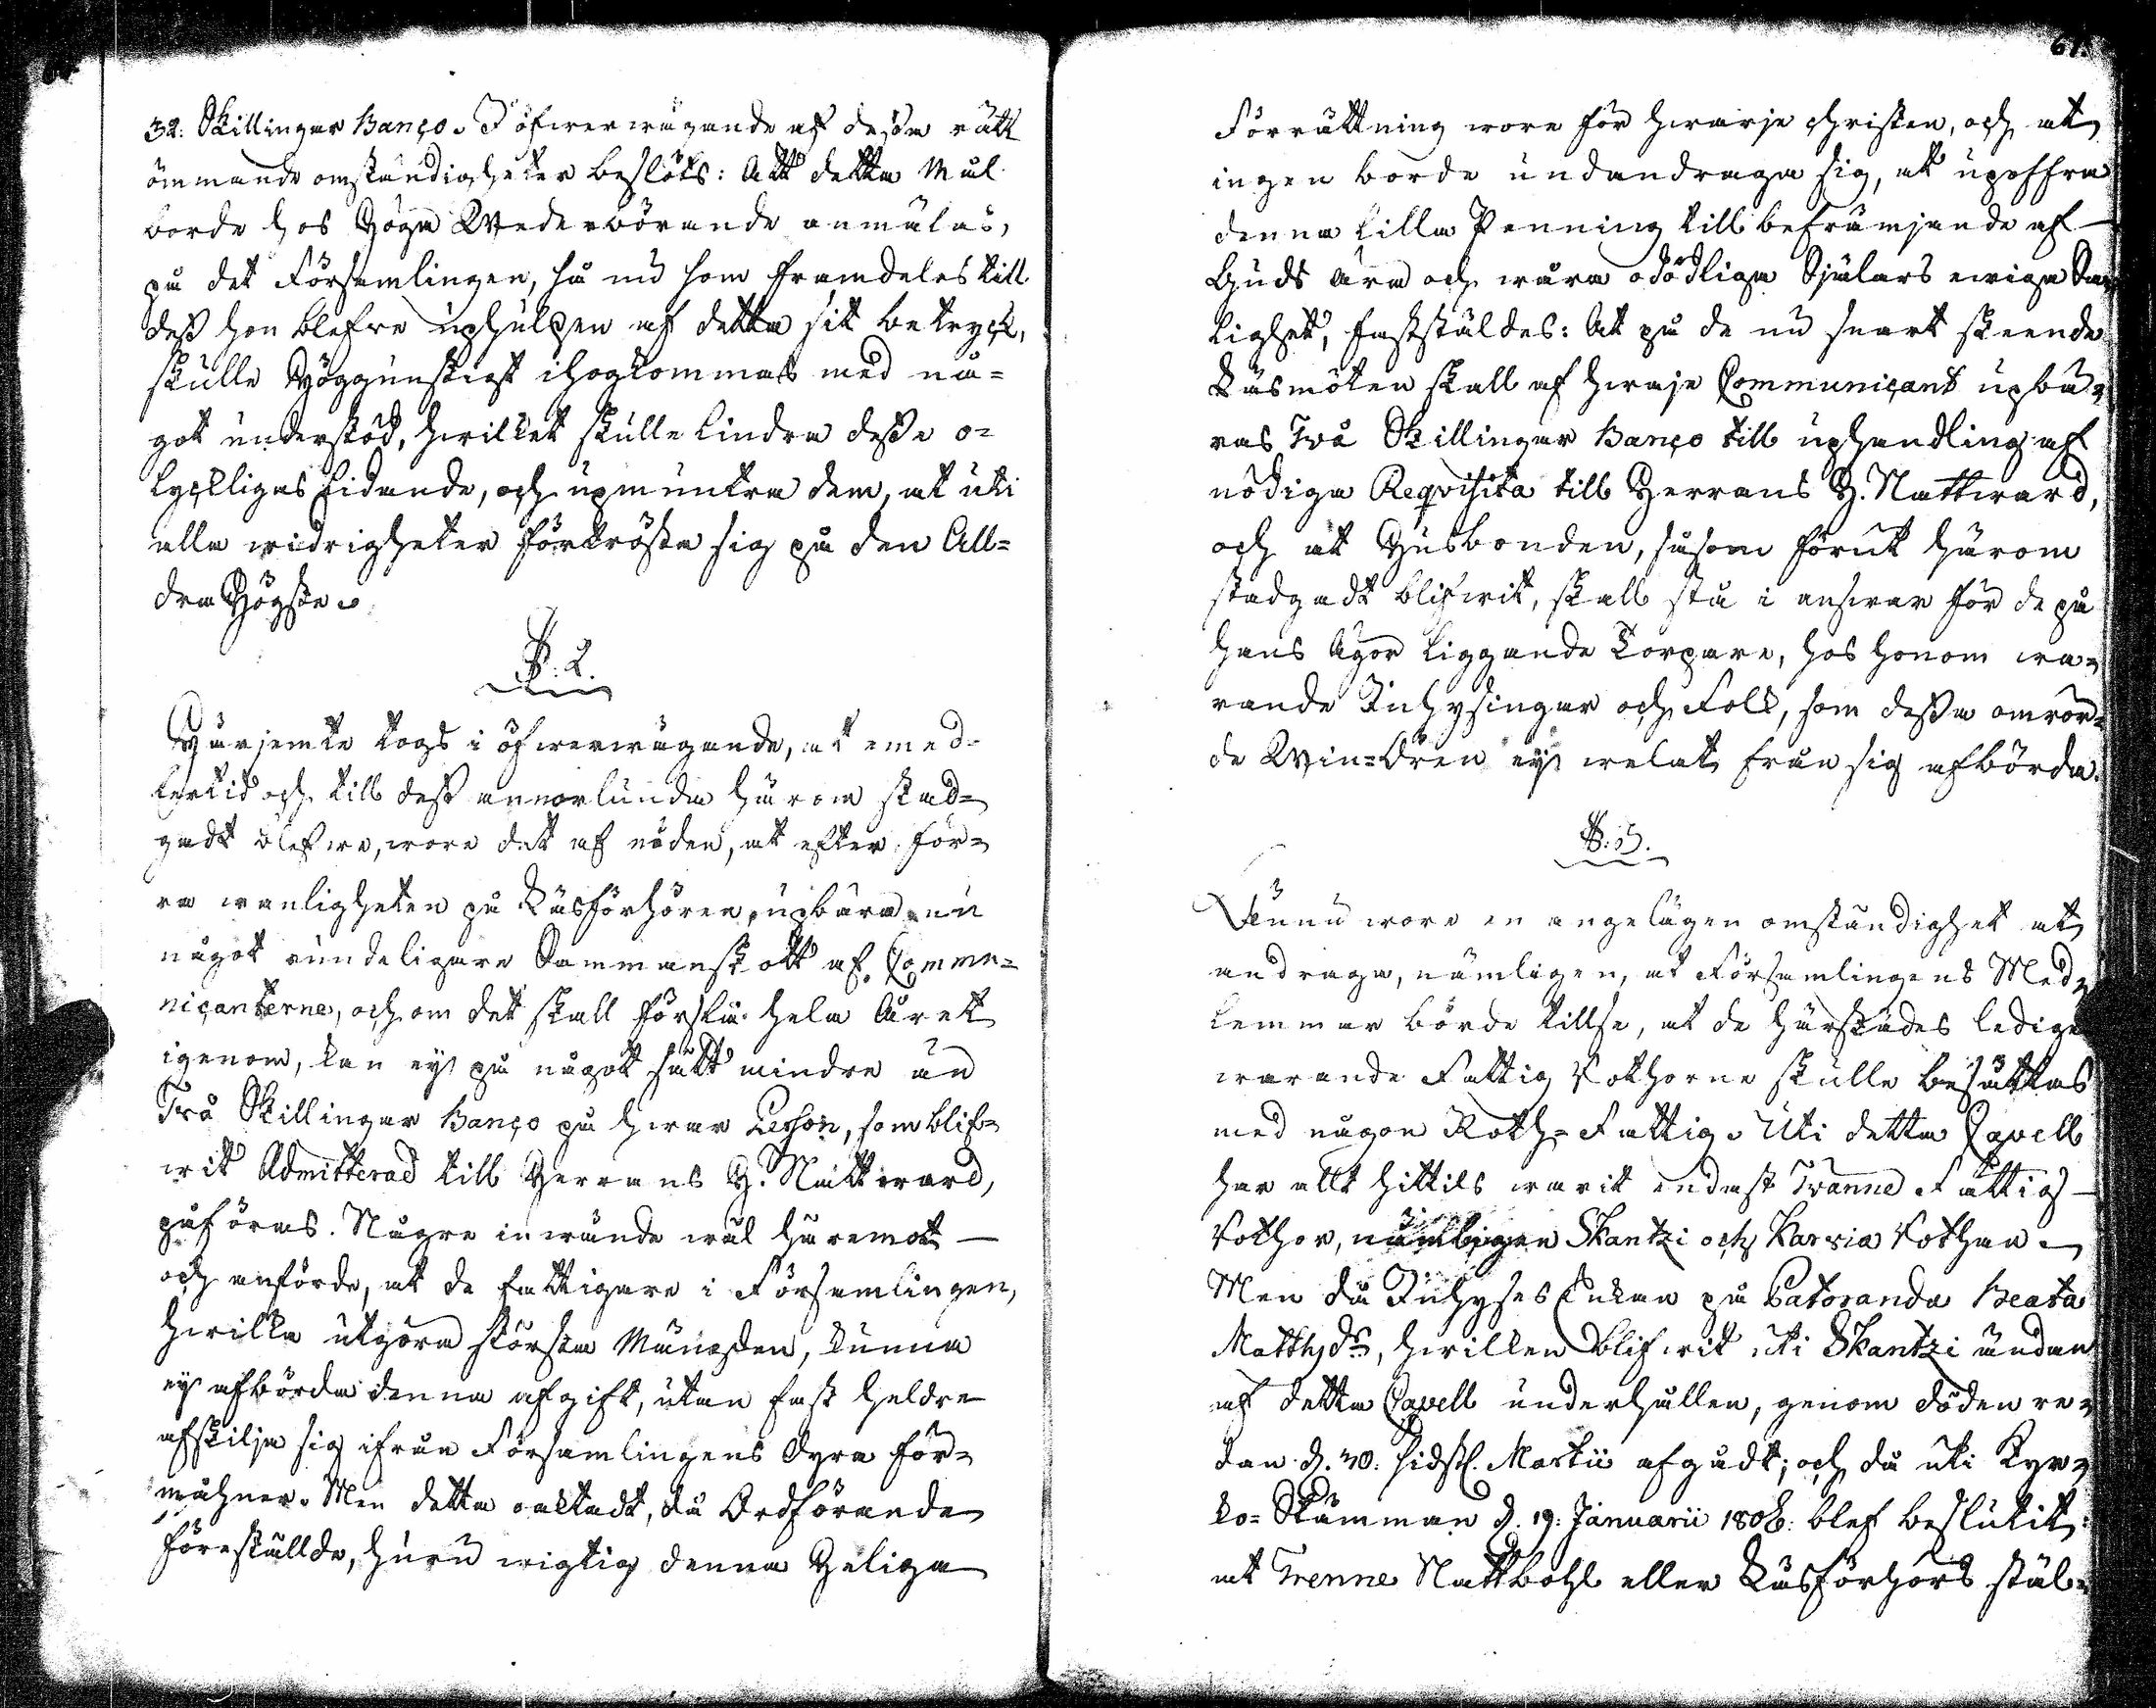 32: Skillingar Banco. I öfwerwägande af dessa rätt
ömmande omständigheter beslöts: Att detta Mål
borde hos Höga Wederbörande anmälas,
på det Församlingen, så nu som framdeles till
dess hon blefwe uphulpen af detta sit betryck,
skulle Höggunstigst ihogkommas med nå-
got understöd, hwilket skulle lindra desse o-
lyckligas Lidande, och upmuntra dem, at uti
alla widrigheter förtrösta sig på den All-
dra Högste.
§. 2.
Härjemte togs i öfwerwägande, at emed-
lertid och till dess annorlunda härom stad-
gadt blefwe, wore det af nöden, at efter för-
ra wanligheten på Läsförhören, upbära nu
något rundeligare Sammanskott af Commu-
nicanterne, och om det skall förslå hela Året
igenom, kan ej på något sätt mindre än
Två Skillingar Banco på hwar Person, som blif-
wit Admitterad till Herrans H. Nattward,
påföras. Någre inwände wäl häremot
och anförde, at de fattigare i Församlingen,
hwilka utgöra största Mängden, kunna
ej afbörda denna afgift, utan fast heldre
afskilja sig ifrån Församlingens dyra för-
måhner. Men detta oaktadt, då Ordförande
föreställde, huru wigtig denna Heliga
61.
Förrättning wore för hwarje christen, och at
ingen borde undandraga sig, at upoffra
denna lilla Penning till befrämjande af
Guds ära och wåra odödliga Själars ewiga Sa
lighet, fastställdes: At på de nu snart skeende
Läsmöten skall af hwarje Communicant upbä-
ras Två Skillingar Banco till uphandling af
nödiga Reqvisita till Herrans H. Nattward,
och at Husbonden, såsom förut härom
stadgadt blifwit, skall stå i answar för de på
hans Ägor liggande Torpare, hos honom wa-
rande Inhysingar och Folk, som dessa omrör-
de Win-Ören ej welat från sig afbörda.
§. 3.
Ännu wore en angelägen omständighet at
andraga, nämligen, at Församlingens Med-
lemmar börde tillse, at de härstädes ledige
warande Fattig Rothorne skulle besättas
med någon Roth-Fattig. Uti detta Capell
har allt hittils warit endast Tvänne Fattig-
Rothor, nämligen Skantzi och Karvia Rothan.
Men då Inhyses Enkan på Patoranda Beata
Matthsdr, hwilken blifwit uti Skantzi ändan
af detta Capell underhållen, genom döden re-
dan d. 30. sidstl. Martii afgådt; och då uti Kyr-
ko-Stämman d. 19. Januarii 1806. blef beslutit,
at Trenne Nattbohl eller Läsförhörs stäl-